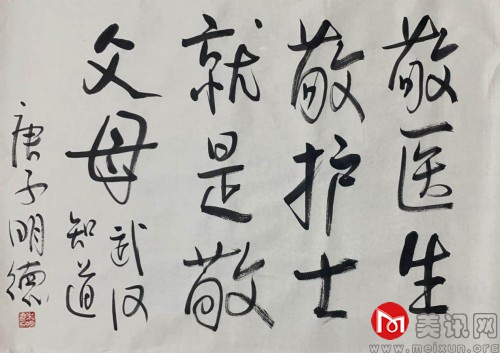 敬医生
敬护士
就是敬
父母
武汉
知道
唐子明德
美讯网
www.meixun.org